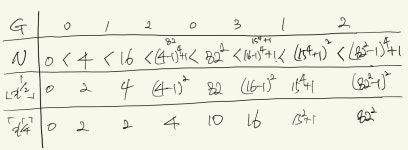 G 0 1 2 0 3 1 2
82 15⁴+1
N 0 < 4 < 16 < (4-1)⁴+1 < 82² < (16-1)⁴+1 < (15⁴+1)² < (82²-1)⁴+1
⌊x^½⌋ 0 2 4 (4-1)² 82 (16-1)² 15⁴+1 (82²-1)²
⌈x^¼⌉ 0 2 2 4 10 16 15²+1 82²